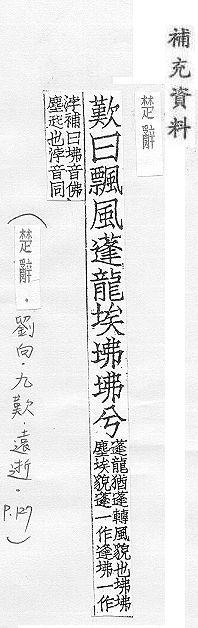 補充資料
楚辭
歎曰飄風蓬龍埃坲坲兮
蓬龍猶蓬轉風貌也坲坲
塵埃貌蓬一作逢坲一作
浡補曰坲音佛
塵起也浡音同
(楚辭・劉向・九歎・遠逝・P.127)